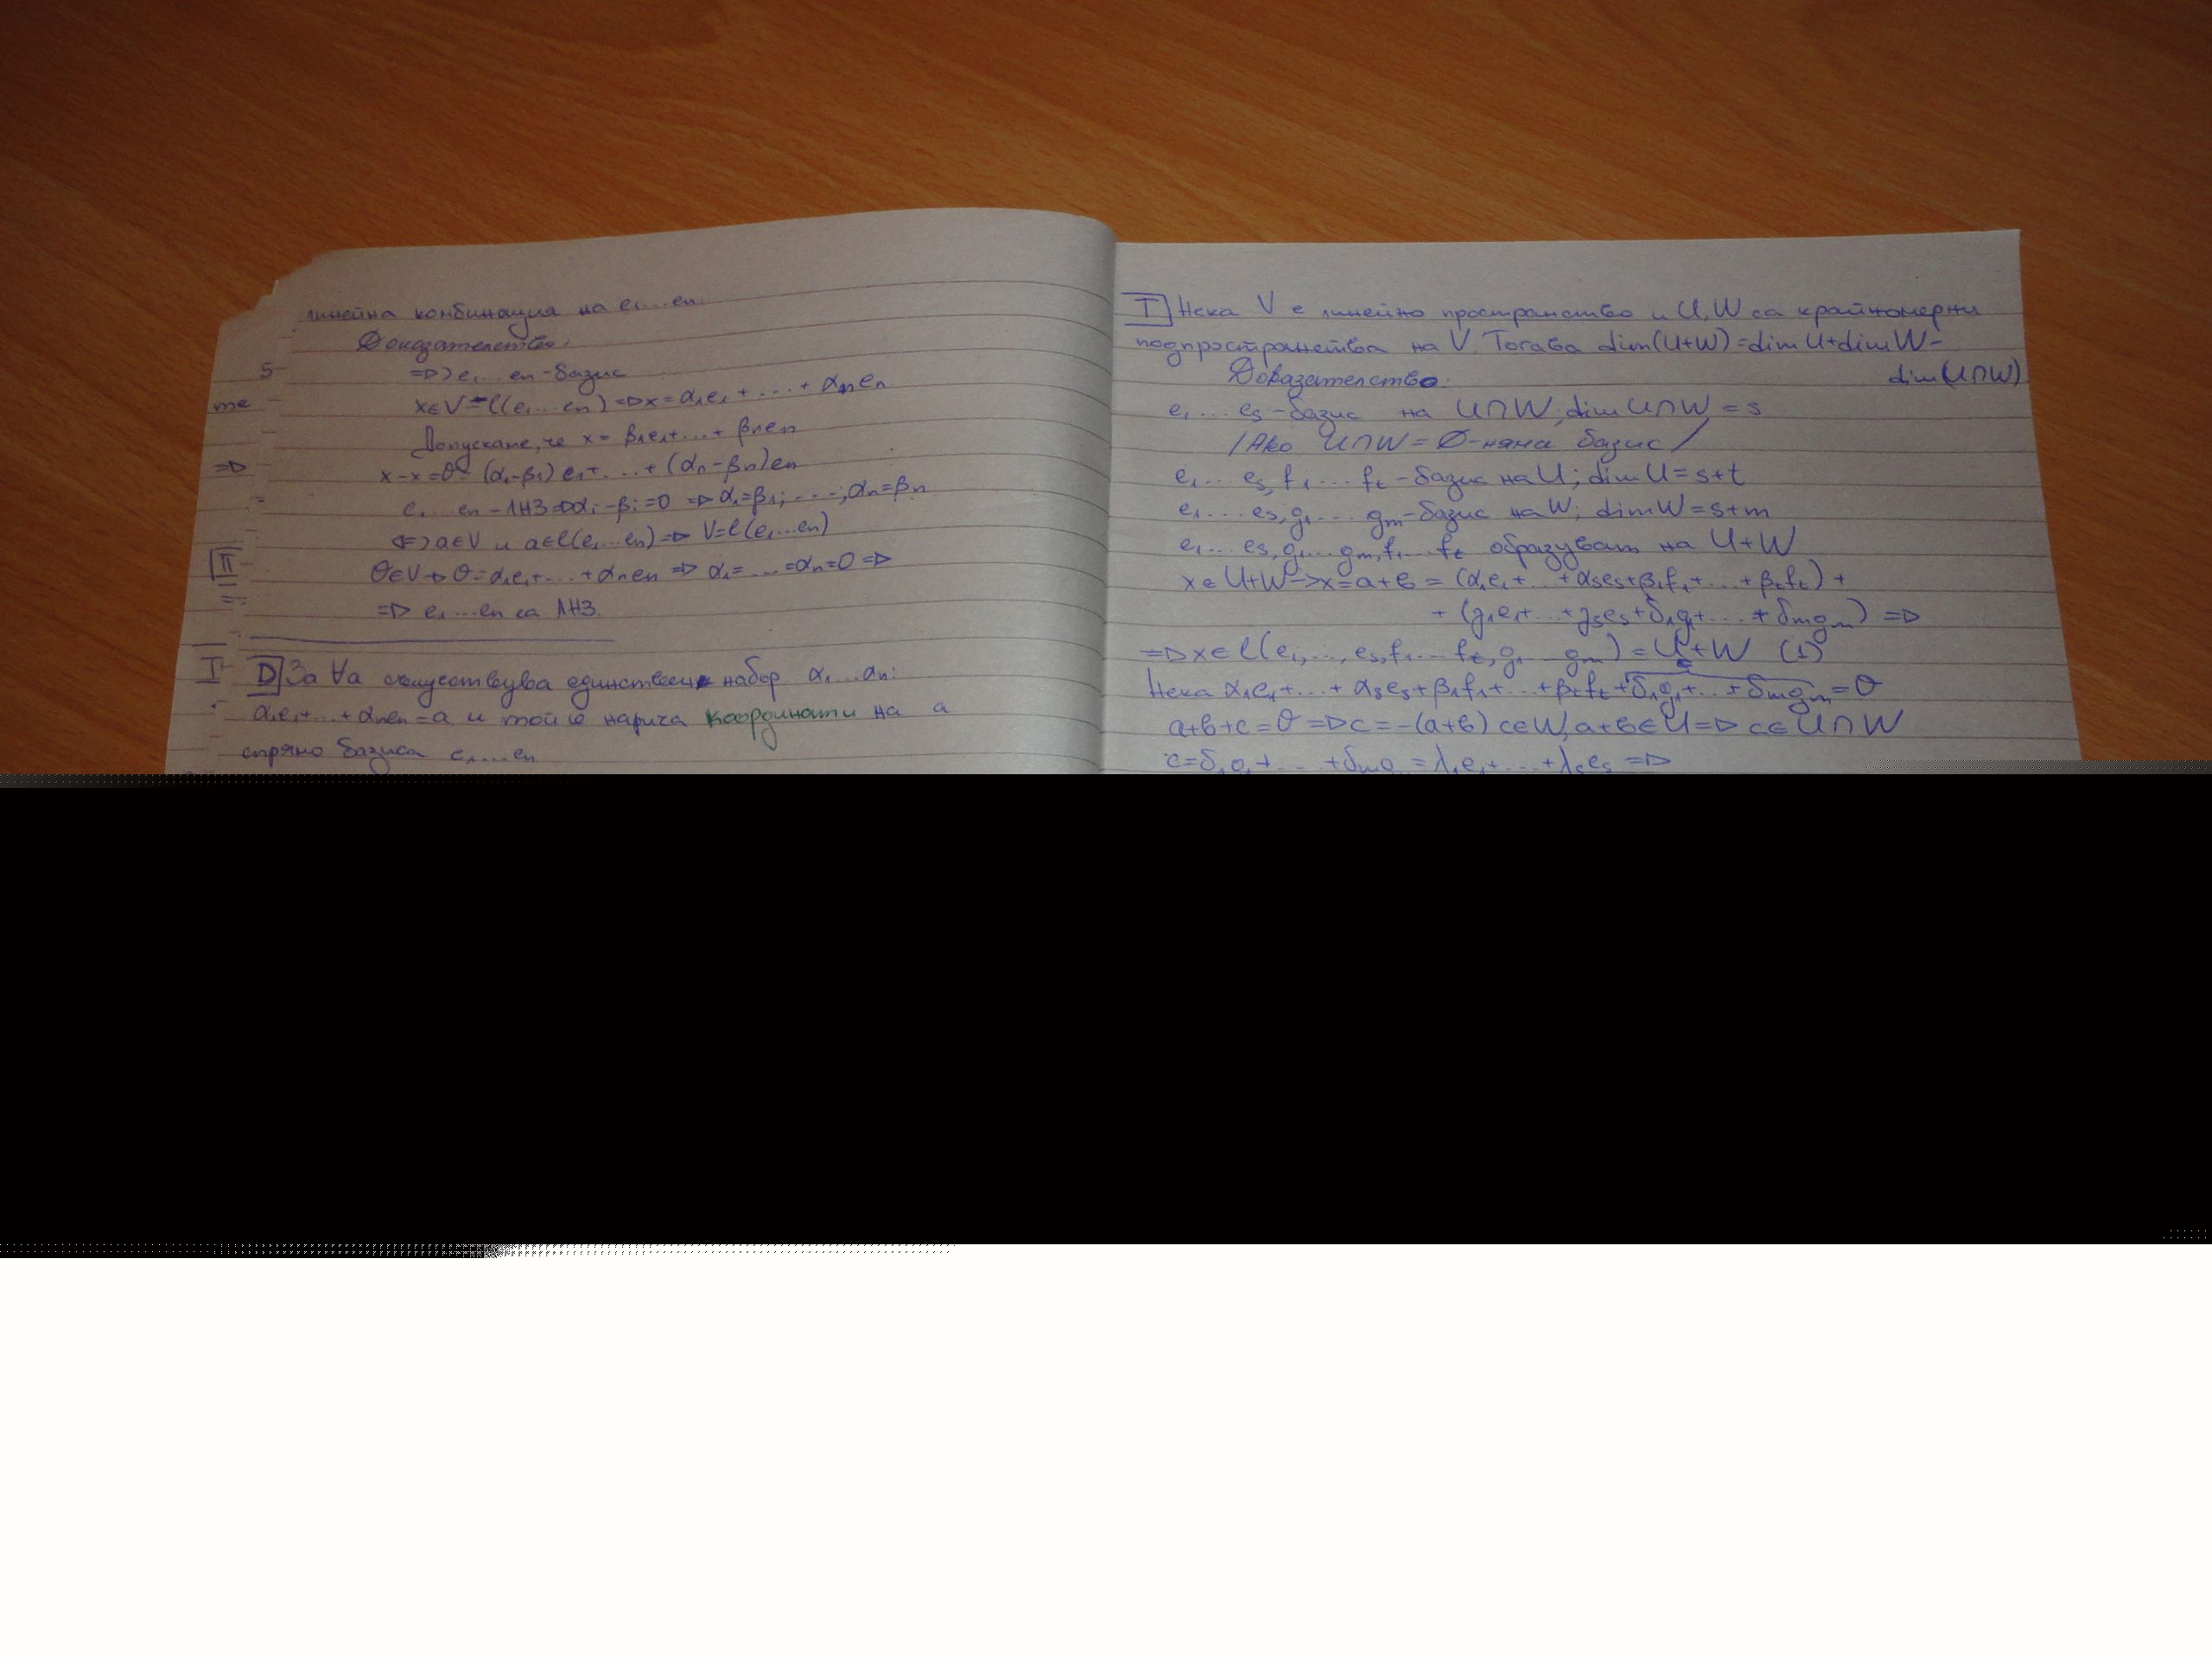 линейна комбинация на e₁....en.
Доказателство:
=>) e₁....en-базис
x∈V=l(e₁...en)=>x=α₁e₁+....+αnen
Допускаме, че x=β₁e₁+...+βnen
x-x=θ=(α₁-β₁)e₁+...+(αn-βn)en
e₁....en-ЛНЗ=>αi-βi=0 => α₁=β₁;....;αn=βn
<=) a∈V и a∈l(e₁...en)=> V=l(e₁...en)
θ∈V→ θ=α₁e₁+...+αnen => α₁=...=αn=0 =>
=> e₁...en са ЛНЗ.
D За ∀a съществува единствен набор α₁...αn:
α₁e₁+...+αnen=a и той се нарича координати на a
спрямо базиса e₁....en
5
те
=>
=
II
=
T
T Нека V е линейно пространство и U,W са крайномерни
подпространства на V. Тогава dim(U+W)=dimU+dimW-
dim(U∩W)
Доказателство:
e₁...es-базис на U∩W; dimU∩W=s
/Ако U∩W=Ø-няма базис/
e₁...es,f₁....ft-базис на U; dimU=s+t
e₁....es,g₁....gm-базис на W; dimW=s+m
e₁...es,g₁...gm,f₁...ft образуват на U+W
x∈U+W->x=a+b=(α₁e₁+...+αses+β₁f₁+...+βtft)+
+(γ₁e₁+...+γses+δ₁g₁+...+δmgm) =>
=>x∈l(e₁,...,es,f₁...ft,g₁...gm)=U+W (1)
c
Нека α₁e₁+...+αses+β₁f₁+...+βtft+δ₁g₁+...+δmgm=θ
a+b+c=θ =>c=-(a+b) c∈W,a+b∈U=> c∈U∩W
c=δ₁g₁+...+δmgm=λ₁e₁+...+λses =>